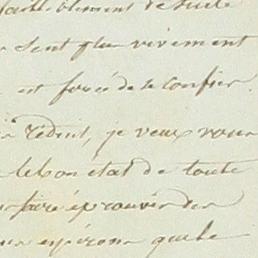 de suite
sent plus vivement
est forcé de se confier.
réduit, je veux vous
le bon état de toute
faire éprouver des
espérons que le